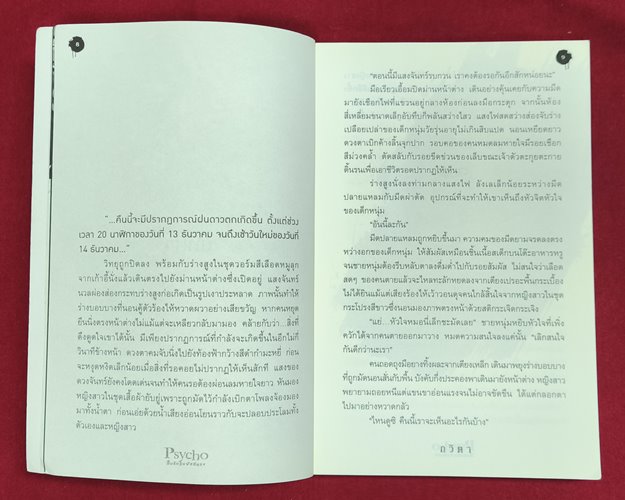 8
"...คืนนี้จะมีปรากฏการณ์ฝนดาวตกเกิดขึ้น ตั้งแต่ช่วง
เวลา 20 นาฬิกาของวันที่ 13 ธันวาคม จนถึงเช้าวันใหม่ของวันที่
14 ธันวาคม..."
วิทยุถูกปิดลง พร้อมกับร่างสูงในชุดวอร์มสีเลือดหมูลุก
จากเก้าอี้นั่งแล้วเดินตรงไปยังม่านหน้าต่างซึ่งเปิดอยู่ แสงจันทร์
นวลผ่องส่องกระทบร่างสูงก่อเกิดเป็นรูปเงาประหลาด ภาพนั้นทำให้
ร่างบอบบางที่นอนคู้ตัวร้องไห้หวาดผวาอย่างเสียขวัญ หากคนหยุด
ยืนนิ่งตรงหน้าต่างไม่แม้แต่จะเหลียวกลับมามอง คล้ายกับว่า...สิ่งที่
ดึงดูดใจเขาได้นั้น มีเพียงปรากฏการณ์ที่กำลังจะเกิดขึ้นในอีกไม่กี่
วินาทีข้างหน้า ดวงตาคมจับนิ่งไปยังท้องฟ้ากว้างสีดำกำมะหยี่ ก่อน
จะหงุดหงิดเล็กน้อยเมื่อสิ่งที่รอคอยไม่ปรากฏให้เห็นสักที แสงของ
ดวงจันทร์ยังคงโดดเด่นจนทำให้คนรอต้องผ่อนลมหายใจยาว หันมอง
หญิงสาวในชุดเสื้อผ้ายับยู่เพราะถูกมัดไว้กำลังเบิกตาโพลงจ้องมอง
มาทั้งน้ำตา ก่อนเอ่ยด้วยน้ำเสียงอ่อนโยนราวกับจะปลอบประโลมทั้ง
ตัวเองและหญิงสาว
Psycho
9
"ตอนนี้มีแสงจันทร์รบกวน เราคงต้องรอกันอีกสักหน่อยนะ"
มือเรียวเอื้อมปิดม่านหน้าต่าง เดินอย่างคุ้นเคยกับความมืด
มายังเชือกไฟที่แขวนอยู่กลางห้องก่อนลงมือกระตุก จากนั้นห้อง
สี่เหลี่ยมขนาดเล็กอับทึบก็พลันสว่างไสว แสงไฟสดสว่างส่องจับร่าง
เปลือยเปล่าของเด็กหนุ่มวัยรุ่นอายุไม่เกินสิบแปด นอนเหยียดยาว
ดวงตาเบิกค้างลิ้นจุกปาก รอบคอของคนหมดลมหายใจมีรอยเชือก
สีม่วงคล้ำ ตัดสลับกับรอยขีดข่วนของเล็บขณะเจ้าตัวตะกุยตะกาย
ดิ้นรนเพื่อเอาชีวิตรอดปรากฏให้เห็น
ร่างสูงนั่งลงท่ามกลางแสงไฟ ลังเลเล็กน้อยระหว่างมีด
ปลายแหลมกับมีดผ่าตัด อุปกรณ์ที่จะทำให้เขาเห็นถึงหัวจิตหัวใจ
ของเด็กหนุ่ม
"อันนี้ละกัน"
มีดปลายแหลมถูกหยิบขึ้นมา ความคมของมีดยามจรดลงตรง
หว่างกลางอก ให้สัมผัสเหมือนชิ้นเนื้อสเต็กบนโต๊ะอาหารหรู
จนชายหนุ่มต้องรีบหลับตาลงดื่มด่ำไปกับรอยสัมผัส ไม่สนใจว่าเลือด
สดๆ ของคนตายแล้วจะไหลทะลักหยดลงจากเตียงเปรอะพื้นกระเบื้อง
ไม่ได้ยินแม้แต่เสียงร้องไห้เร้าวอนดุจคนใกล้สิ้นใจจากหญิงสาวในชุด
กระโปรงสีขาวซึ่งนอนมองภาพตรงหน้าด้วยสติกระเจิดกระเจิง
"แย่...หัวใจหมอนี่เล็กชะมัดเลย" ชายหนุ่มหยิบหัวใจที่เพิ่ง
คว้าได้จากคนตายออกมาวาง หมดความสนใจลงแค่นั้น "เลิกสนใจ
กันดีกว่านะเรา"
คนถอดถุงมือยางทิ้งละจากเตียงเหล็ก เดินมาพยุงร่างบอบบาง
ที่ถูกมัดนอนสั่นกับพื้น บังคับกึ่งประคองพาเดินมายังหน้าต่าง หญิงสาว
พยายามถอยหนีแต่แขนขาอ่อนแรงจนไม่อาจขัดขืน ได้แต่กลอกตา
ไปมาอย่างหวาดกลัว
"ไหนดูซิ คืนนี้เราจะเห็นอะไรกันบ้าง"
ถวิตา